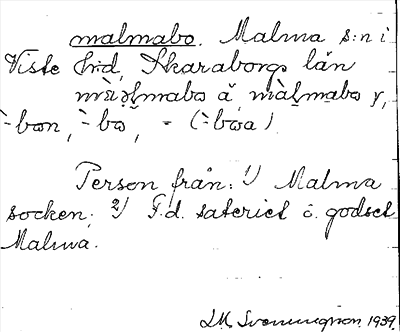 malmabo. Malma s:n i
Viste h:d, Skaraborgs län
målmabo y,
-bon, -bo, = (-boa)
Person från: 1) Malma
socken; 2) F.d. säteriet o. godset
Malma.
Sveningson 1939.